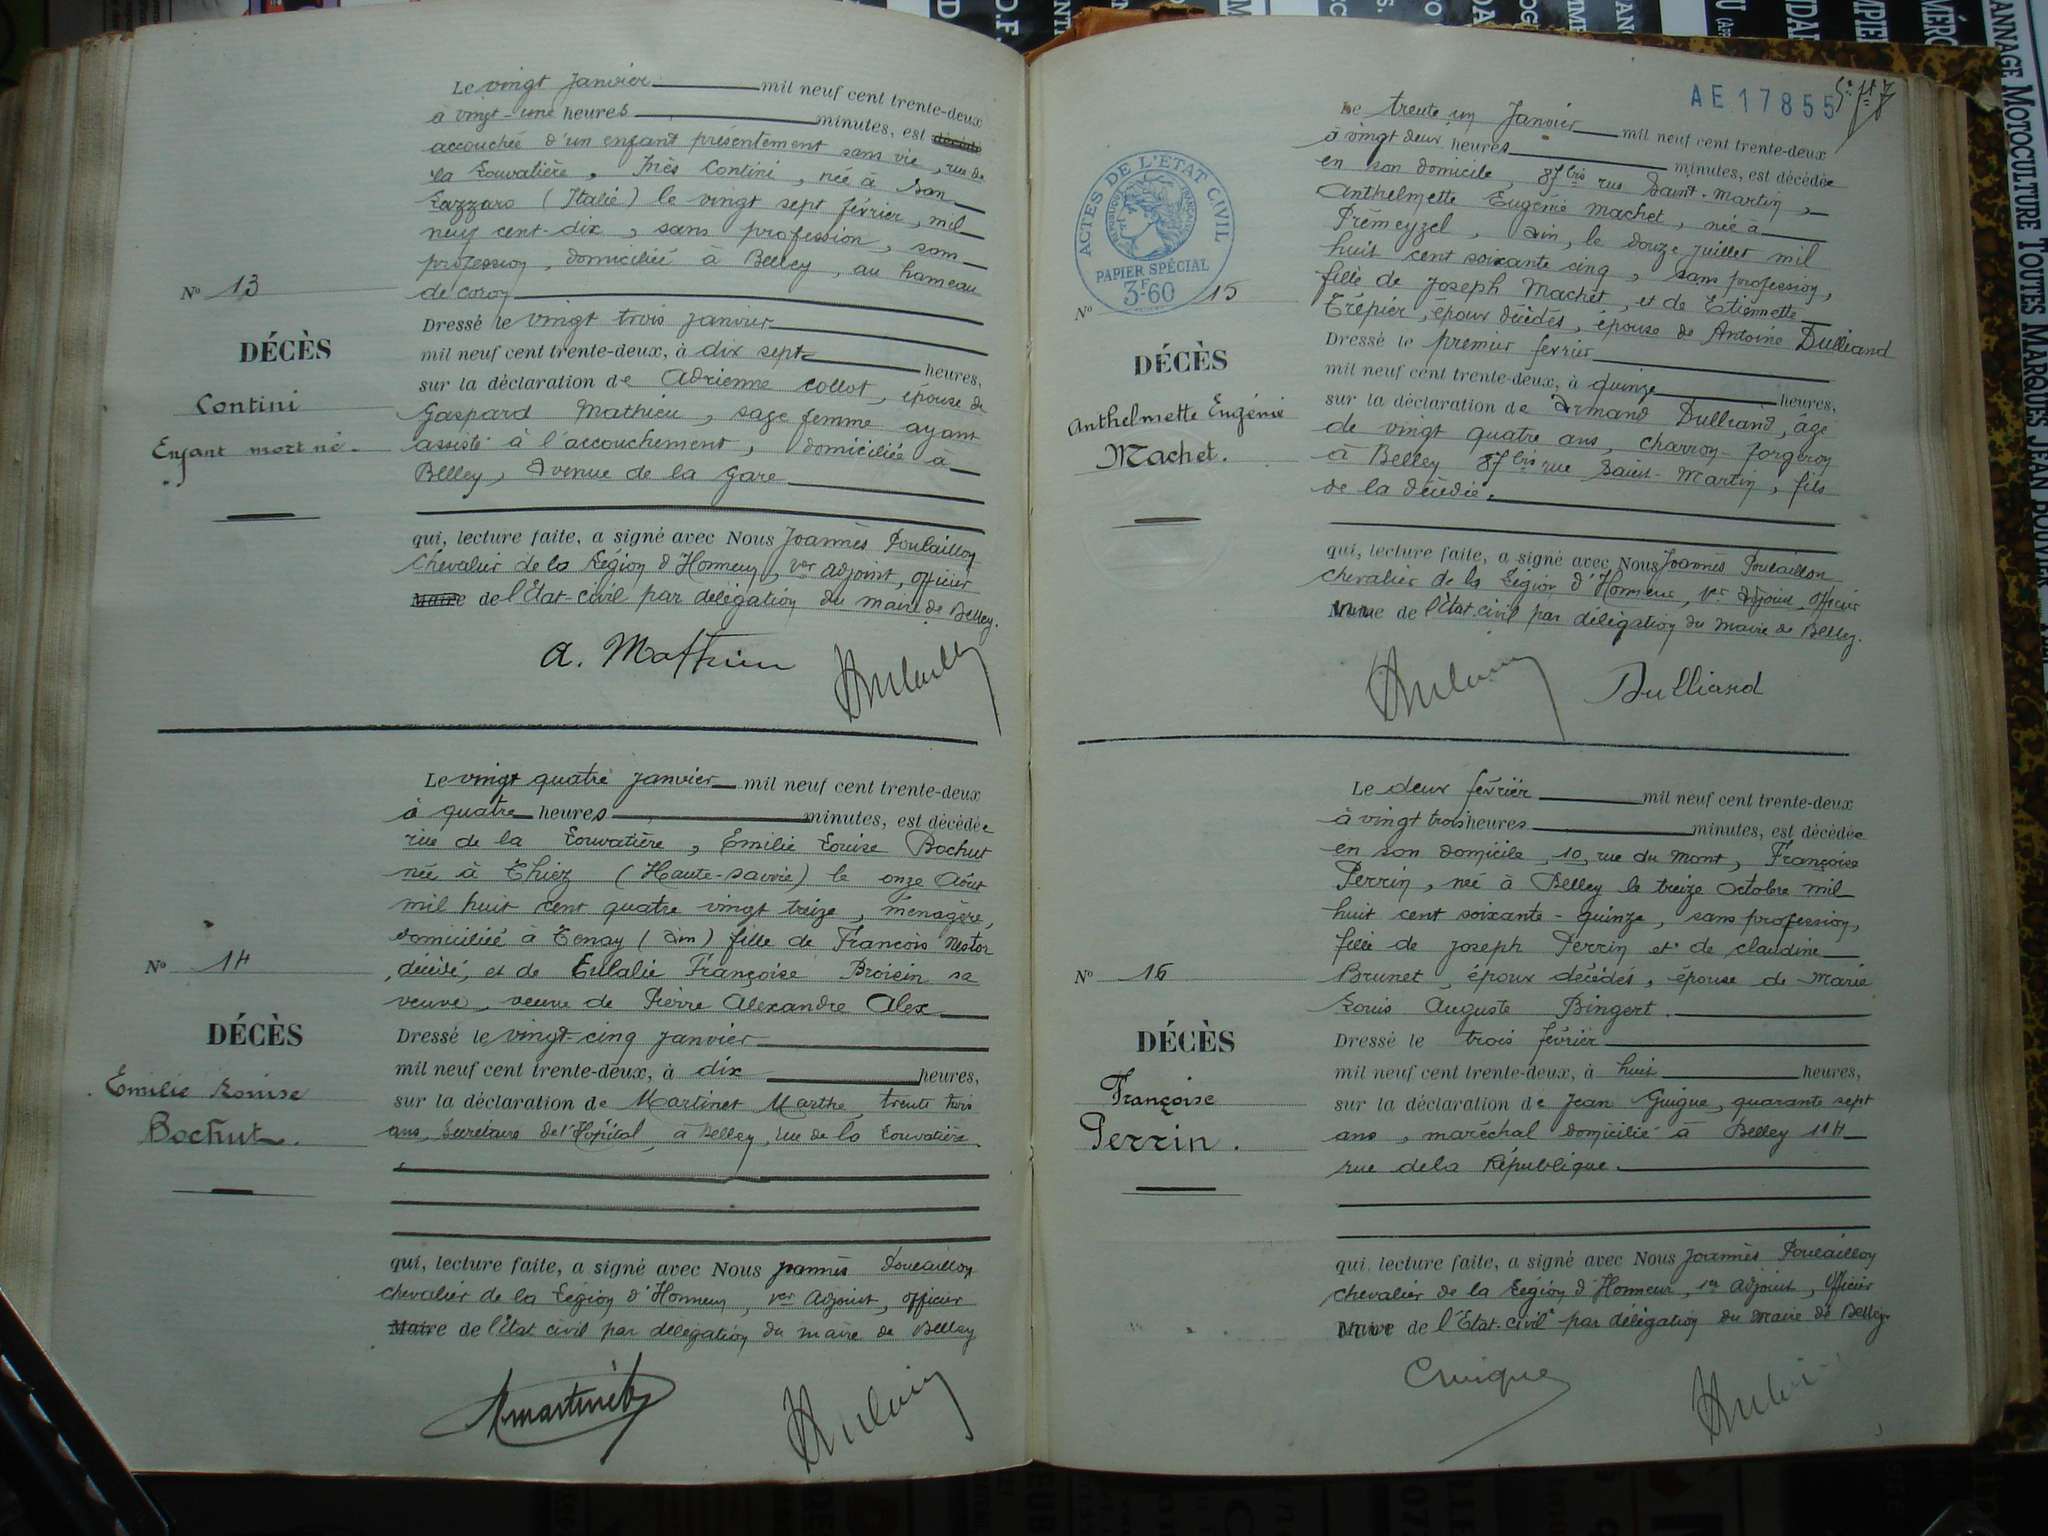 Le vingt janvier mil neuf cent trente-deux
à vingt-une heures minutes, est décédé
accouchée d'un enfant présentement sans vie, rue de
la Louvatière, Inès Contini, née à San
Lazzaro (Italie) le vingt sept février, mil
neuf cent-dix, sans profession, sans
profession, domiciliée à Belley, au hameau
de Coron
Nº 13
DÉCÈS
Contini
Enfant mort né.
Dressé le vingt trois janvier
mil neuf cent trente-deux, à dix sept heures,
sur la déclaration de Adrienne Collot, épouse de
Gaspard Mathieu, sage femme ayant
assisté à l'accouchement, domiciliée à
Belley, Avenue de la Gare
qui, lecture faite, a signé avec Nous Joannès Poulaillon
Chevalier de la Légion d'Honneur, 1er adjoint, officier
Maire de l'Etat-civil par délégation du maire de Belley.
A. Mathieu
Le vingt quatre janvier mil neuf cent trente-deux
à quatre heures minutes, est décédée
rue de la Louvatière, Emilie Louise Bochut
née à Thiez (Haute-Savoie) le onze Août
mil huit cent quatre vingt treize, ménagère,
domiciliée à Tenay (Ain) fille de François Nestor
décédé, et de Eulalie Françoise Broisin sa
veuve, veuve de Pierre Alexandre Alex
Nº 14
DÉCÈS
Emilie Louise
Bochut.
Dressé le vingt-cinq janvier
mil neuf cent trente-deux, à dix heures,
sur la déclaration de Martinet Marthe, trente trois
ans, Secrétaire de l'Hôpital, à Belley, rue de la Louvatière.
qui, lecture faite, a signé avec Nous Joannès Poulaillon
chevalier de la Légion d'Honneur, 1er Adjoint, officier
Maire de l'Etat civil par délégation du maire de Belley
Martinet
AE17855
ACTES DE L'ETAT CIVIL
RÉPUBLIQUE FRANÇAISE
PAPIER SPÉCIAL
3F.60
Le trente un Janvier mil neuf cent trente-deux
à vingt deux heures minutes, est décédée
en son domicile, 87 bis rue Saint-Martin,
Anthelmette Eugénie Machet, née à
Prémeyzel, Ain, le douze juillet mil
huit cent soixante cinq, sans profession,
fille de Joseph Machet, et de Etiennette
Trépier, époux décédés, épouse de Antoine Dulliand
Nº 15
DÉCÈS
Anthelmette Eugénie
Machet.
Dressé le premier février
mil neuf cent trente-deux, à quinze heures,
sur la déclaration de Armand Dulliand, âgé
de vingt quatre ans, charron-forgeron
à Belley 87 bis rue Saint-Martin, fils
de la décédée.
qui, lecture faite, a signé avec Nous Joannès Poulaillon
chevalier de la Légion d'Honneur, 1er Adjoint, officier
Maire de l'Etat civil par délégation du Maire de Belley.
Dulliand
Le deux février mil neuf cent trente-deux
à vingt trois heures minutes, est décédée
en son domicile, 10, rue du Mont, Françoise
Perrin, née à Belley le treize octobre mil
huit cent soixante-quinze, sans profession,
fille de Joseph Perrin et de Claudine
Brunet, époux décédés, épouse de Marie
Louis Auguste Bingert.
Nº 16
DÉCÈS
Françoise
Perrin.
Dressé le trois février
mil neuf cent trente-deux, à huit heures,
sur la déclaration de Jean Guigue, quarante sept
ans, maréchal domicilié à Belley 114
rue de la République.
qui, lecture faite, a signé avec Nous Joannès Poulaillon
chevalier de la Légion d'Honneur, 1er adjoint, Officier
Maire de l'Etat-civil par délégation du Maire de Belley.
Guigue
ANNAGE MOTOCULTURE TOUTES MARQUES JEAN BOUVIER